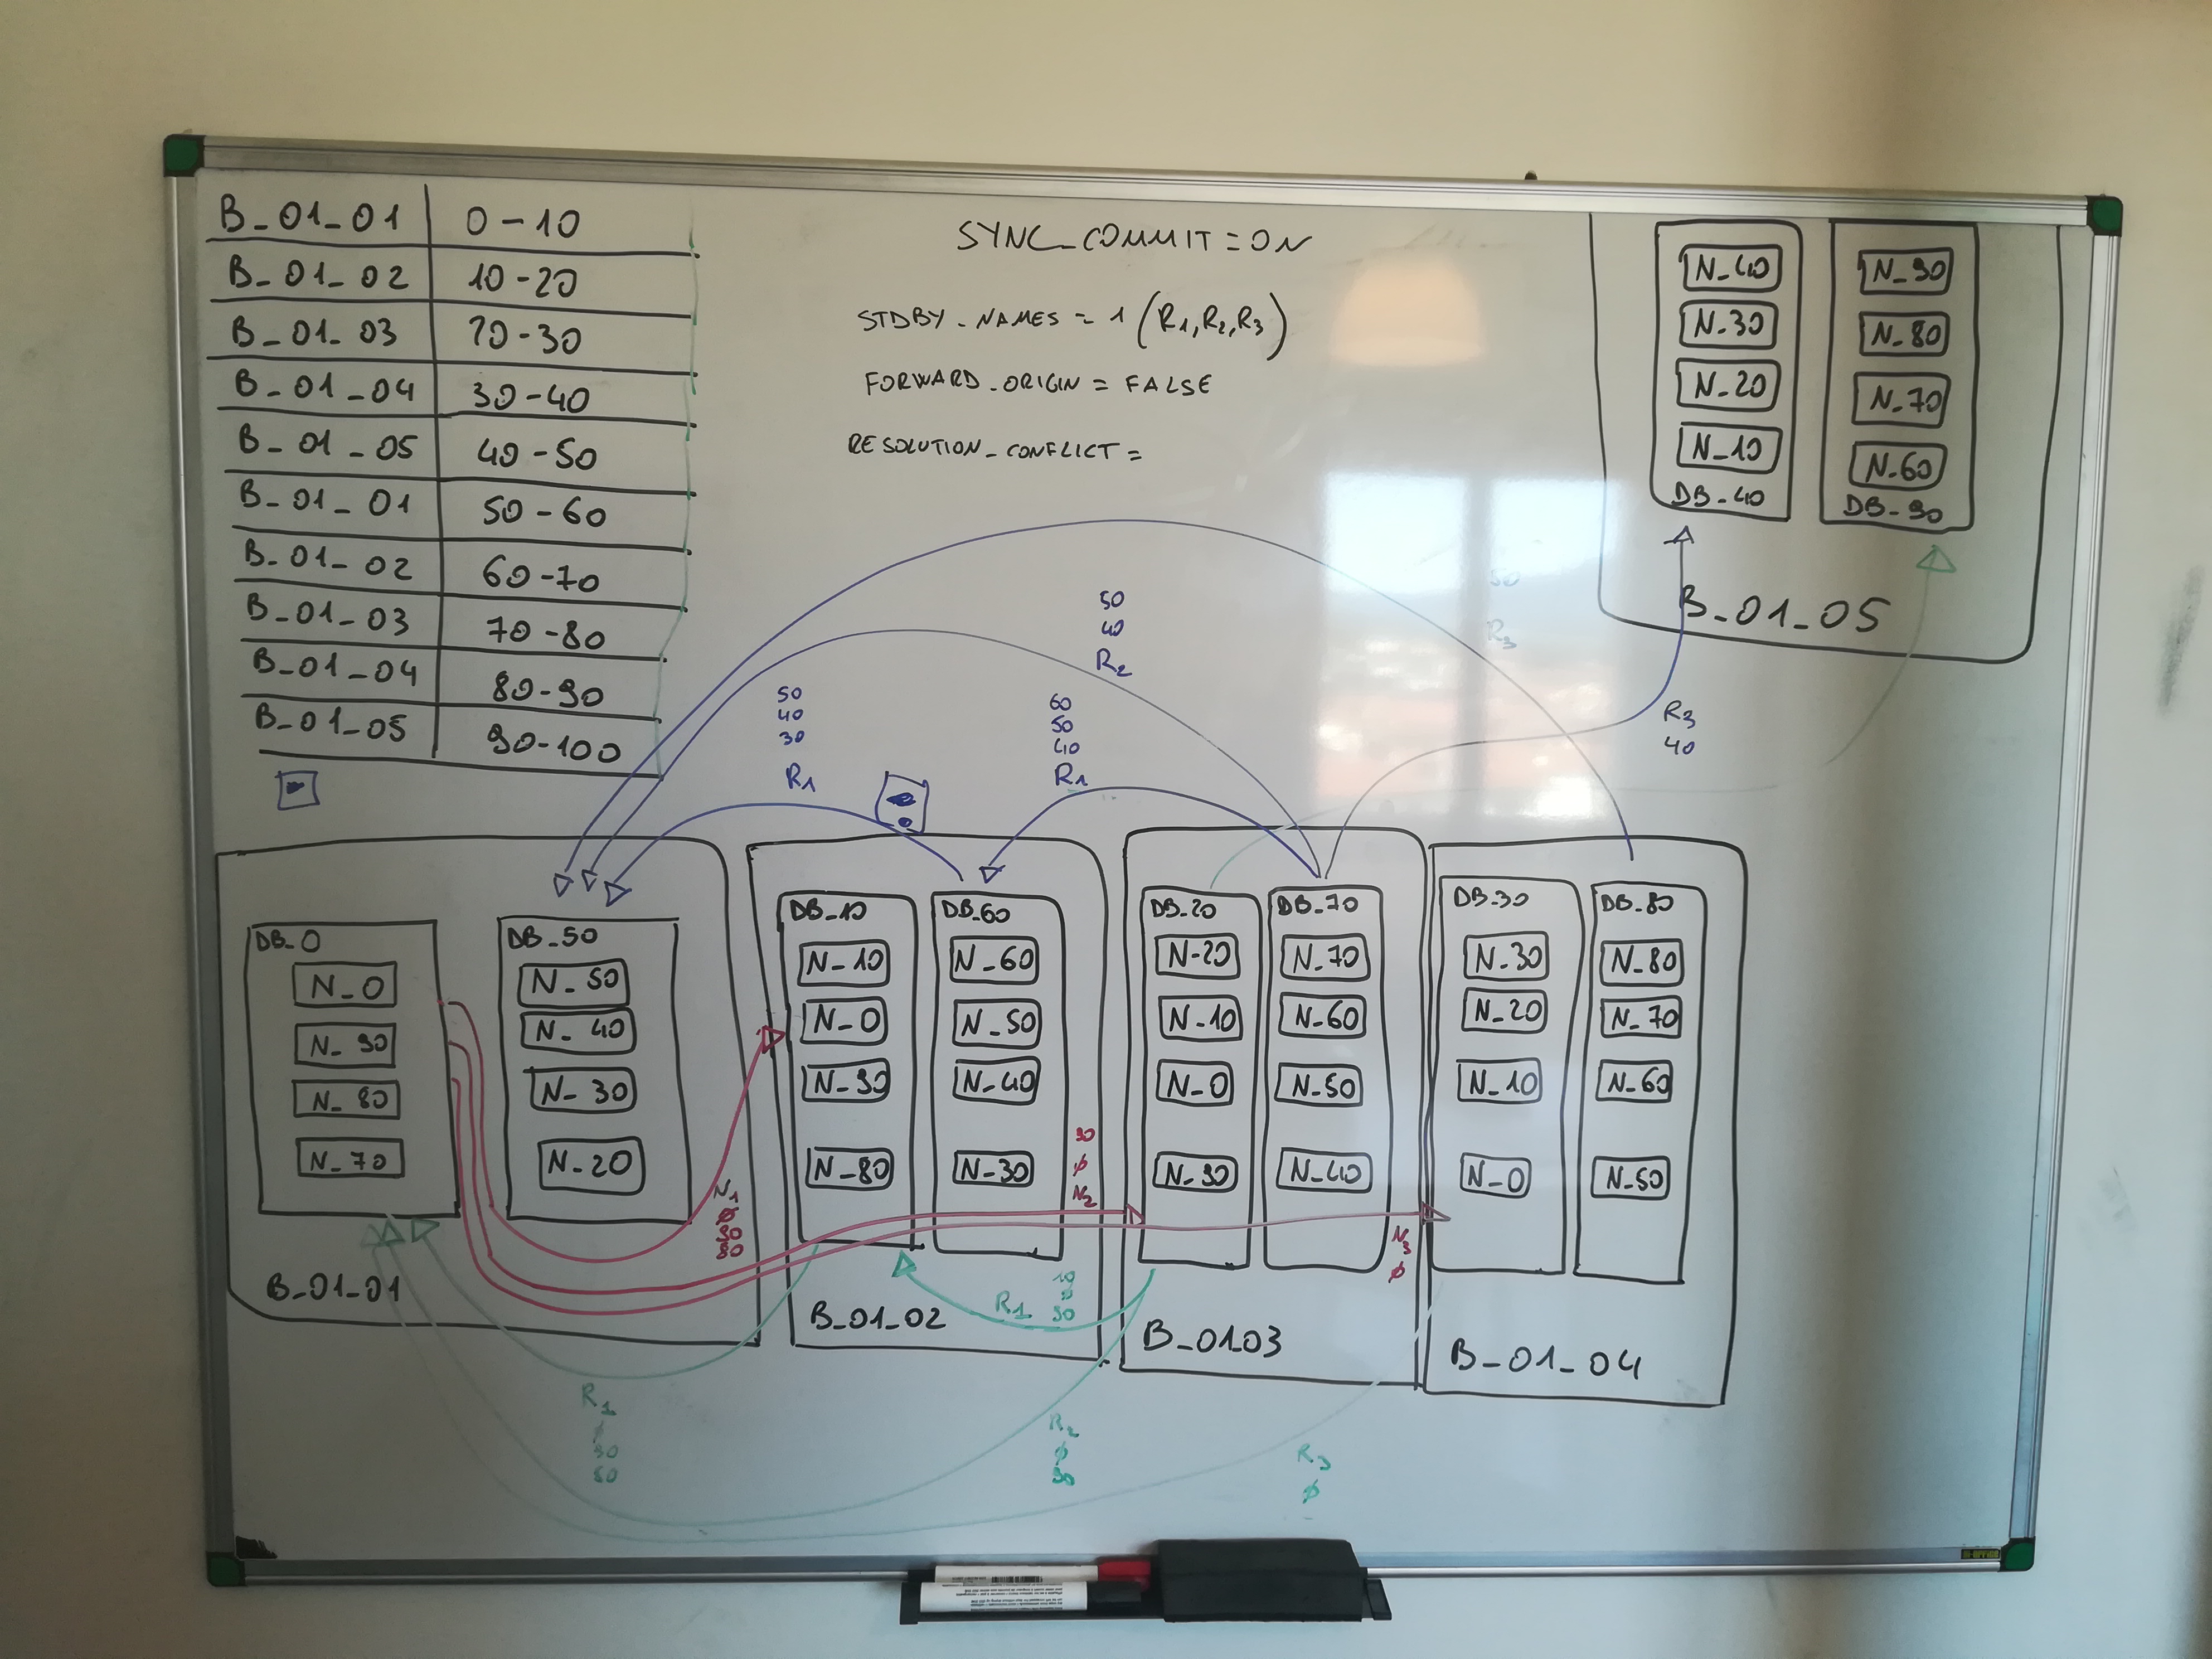 B_01_01 0-10
B_01_02 10-20
B_01_03 20-30
B_01_04 30-40
B_01_05 40-50
B_01_01 50-60
B_01_02 60-70
B_01_03 70-80
B_01_04 80-90
B_01_05 90-100
SYNC_COMMIT = ON
STDBY_NAMES = 1 (R1, R2, R3)
FORWARD_ORIGIN = FALSE
RESOLUTION_CONFLICT =
N_40
N_30
N_20
N_10
DB_40
N_90
N_80
N_70
N_60
DB_90
B_01_05
50
40
30
R1
60
50
40
R1
50
40
R2
50
R3
R3
40
DB_0
N_0
N_90
N_80
N_70
DB_50
N_50
N_40
N_30
N_20
B_01_01
DB_10
N_10
N_0
N_90
N_80
DB_60
N_60
N_50
N_40
N_30
B_01_02
DB_20
N_20
N_10
N_0
N_90
DB_70
N_70
N_60
N_50
N_40
B_0103
DB_30
N_30
N_20
N_10
N_0
DB_80
N_80
N_70
N_60
N_50
B_01_04
N1
ø
90
80
90
ø
N2
N3
ø
R1
90
R1
ø
90
80
R2
ø
90
R3
ø